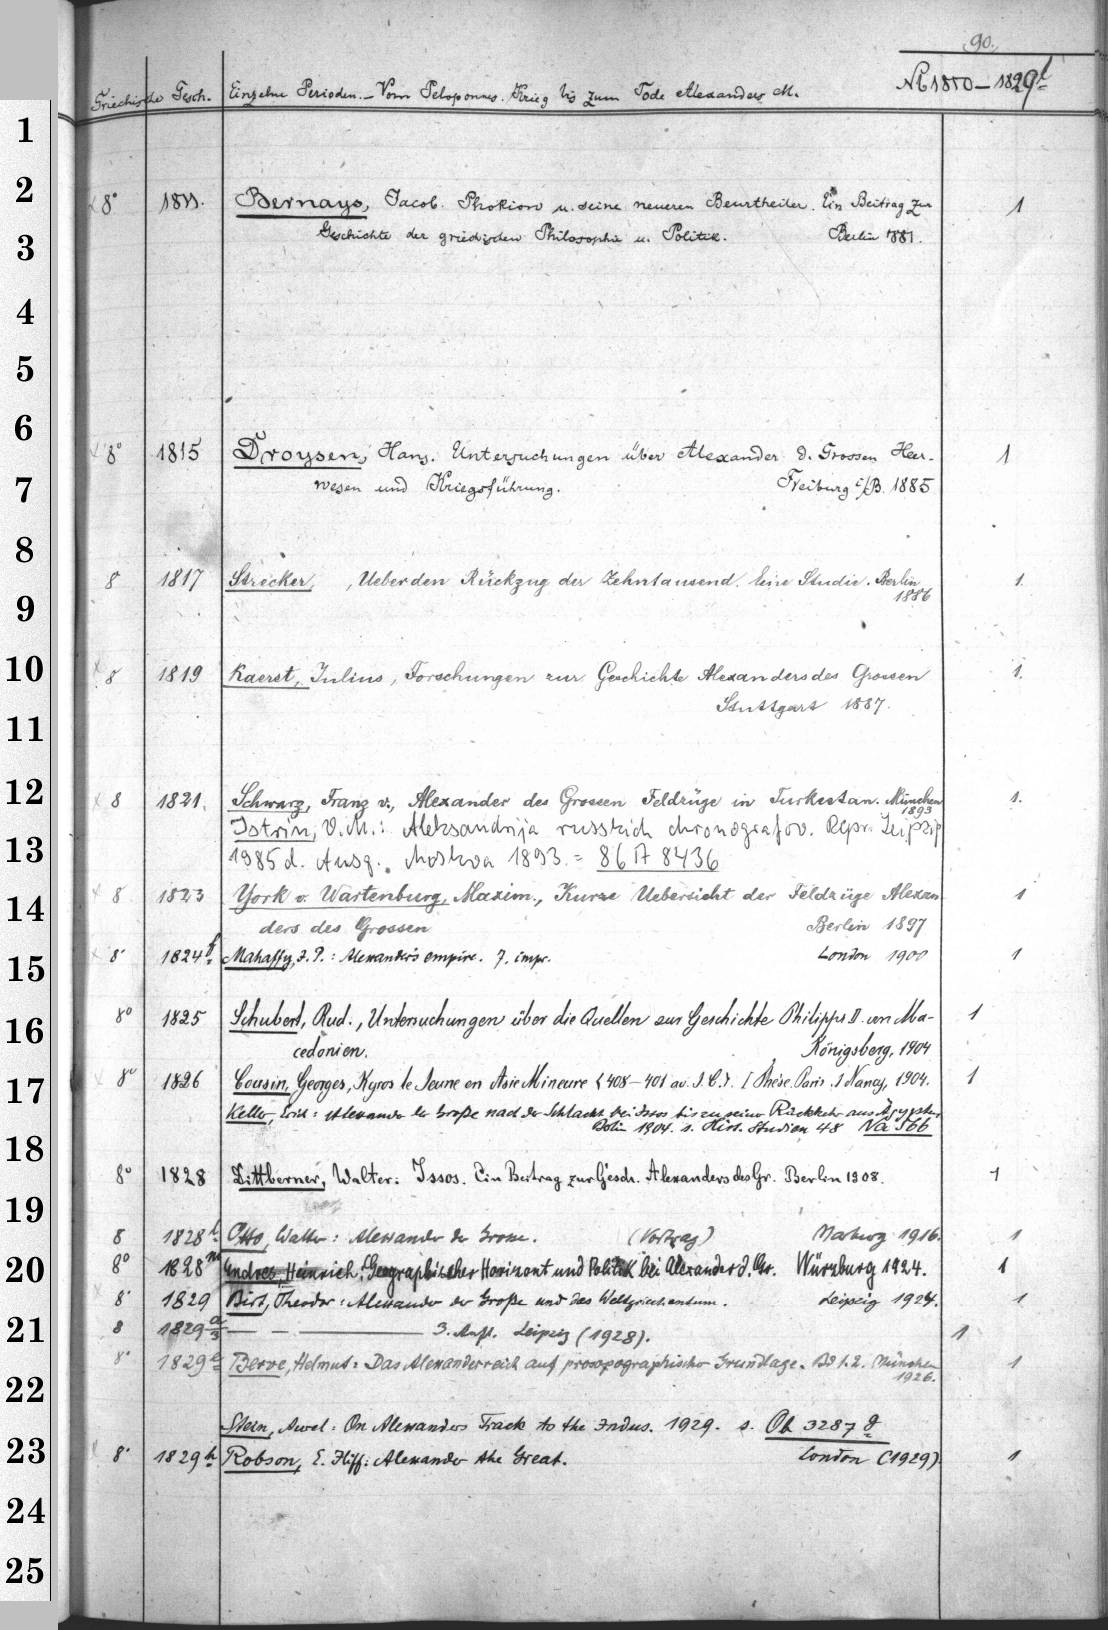 90.
Griechische Gesch. Einzelne Perioden. – Vom Peloponnes. Krieg bis zum Tode Alexanders M. № 1800–1829l
1
2
8° 1811. Bernays, Jacob. Phokion u. seine neueren Beurtheiler. Ein Beitrag zur 1
3
Geschichte der griechischen Philosophie u. Politik. Berlin 1881.
4
5
6
8° 1815 Droysen, Hans. Untersuchungen über Alexander d. Grossen Heer- 1
7
wesen und Kriegsführung. Freiburg i/B. 1885
8
8 1817 Stricker, , Ueber den Rückzug der Zehntausend. Eine Studie. Berlin 1.
1886
9
10
8 1819 Kaerst, Julius, Forschungen zur Geschichte Alexanders des Grossen 1.
Stuttgart 1887.
11
12
8 1821. Schwarz, Franz v., Alexander des Grossen Feldzüge in Turkestan. München 1.
1893
Istrin, V. M.: Aleksandrija russkich chronografov. Repr. Leipzig
13
1985 d. Ausg. Moskva 1893. = 86 A 8436
8 1823 York v. Wartenburg, Maxim., Kurze Uebersicht der Feldzüge Alexan 1
14
ders des Grossen Berlin 1897
15
8° 1824 f Mahaffy, J. P.: Alexander's empire. 7. impr. London 1900 1
16
8° 1825 Schubert, Rud., Untersuchungen über die Quellen zur Geschichte Philipps II. von Ma- 1
cedonien. Königsberg, 1904
17
8° 1826 Cousin, Georges, Kyros le Jeune en Asie Mineure (408–401 av. J. C.). [Thèse. Paris.] Nancy, 1904. 1
Keller, Erich: Alexander der Große nach der Schlacht bei Issos bis zu seiner Rückkehr aus Ägypten
Berlin 1904. s. Hist. Studien 48 Na 566
18
8° 1828 Dittberner, Walter: Issos. Ein Beitrag zur Gesch. Alexanders des Gr. Berlin 1908. 1
19
8 1828 h Otto, Walter: Alexander der Grosse. (Vortrag) Marburg 1916. 1
20
8° 1828 m Endres, Heinrich: Geographischer Horizont und Politik bei Alexander d. Gr. Würzburg 1924. 1
8° 1829 Birt, Theodor: Alexander der Große und das Weltgriechentum. Leipzig 1924. 1
21
8 1829 a/3 — — ——— 3. Aufl. Leipzig (1928). 1
8° 1829 e Berve, Helmut: Das Alexanderreich auf prosopographischer Grundlage. Bd 1.2. München 1
1926.
22
Stein, Aurel: On Alexanders Track to the Indus. 1929. s. Ob 3287 d
23
8° 1829 h Robson, E. Iliff: Alexander the Great. London (1929) 1
24
25